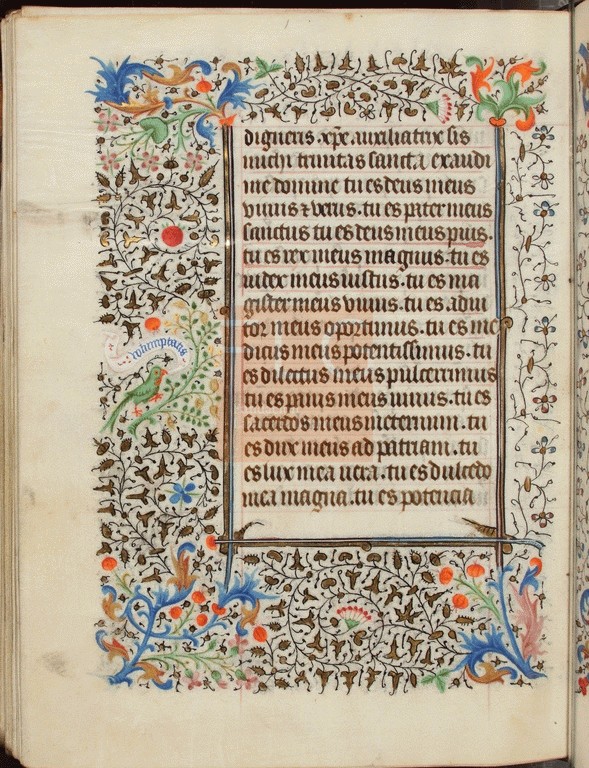 digneris. xpe. auxiliatrix sis
michi trinitas sancta exaudi
me domine tu es deus meus
vivus ⁊ verus. tu es pater meus
sanctus tu es deus meus pius.
tu es rex meus magnus. tu es
iudex meus iustus. tu es ma
gister meus vivus. tu es. adiu
tor meus oportunus. tu es me
dicus meus potentissimus. tu
es dilectus meus pulcerrimus
tu es panis meus vivus. tu es
sacerdos meus ineternum. tu
es dux meus ad patriam. tu
es lux mea vera. tu es dulcedo
mea magna. tu es potencia